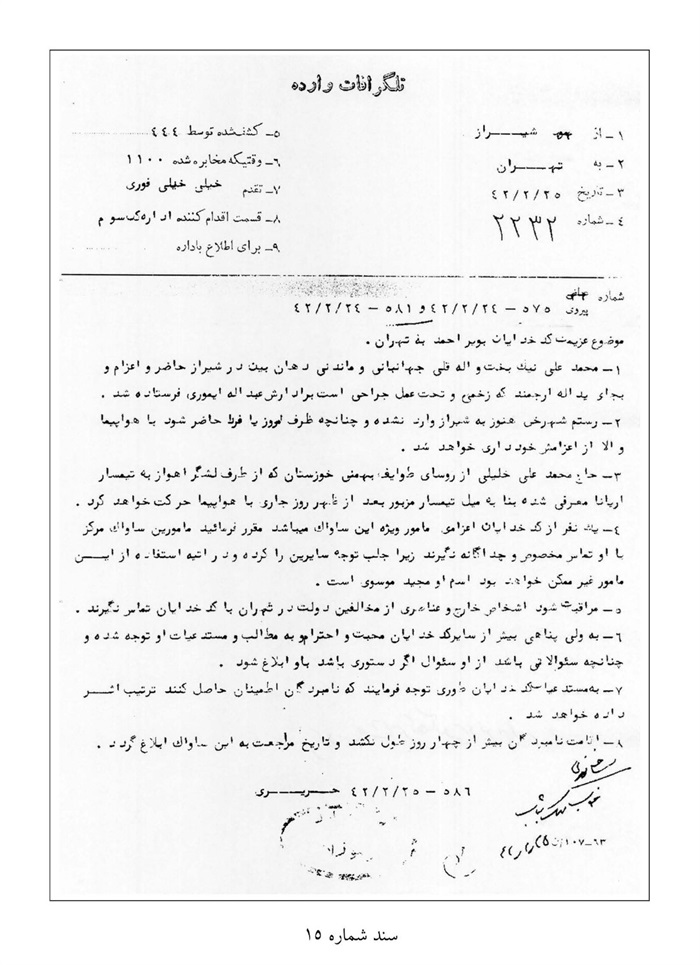 تلگرافات وارده
۱ــ از شیـــراز
۲ــ به تهــران
۳ــ تاریخ ۴۲/۲/۲۵
۴ــ شماره ۲۲۳۲
۵ــ کشفشده توسط ۴۴۴
۶ــ وقتیکه مخابره شده ۱۱۰۰
۷ــ تقدم خیلی خیلی فوری
۸ــ قسمت اقدام کننده اداره کل سوم
۹ــ برای اطلاع باداره
شماره
پیروی ۵۷۵ – ۴۲/۲/۲۴ و ۵۸۱ – ۴۲/۲/۲۴
موضوع عزیمت کدخدایان بویر احمد به تهران .
۱ــ محمد علی نیک بخت و اله قلی جهانبانی و ماندنی دهان بین در شیراز حاضر و اعزام و
بجای ید اله ارجمند که زخمی و تحت عمل جراحی است برادارش عبد اله ایموری فرستاده شد .
۲ــ رستم شهرخی هنوز به شیراز وارد نشده و چنانچه ظرف امروز یا فردا حاضر شود با هواپیما
و الا از اعزامش خود داری خواهد شد .
۳ــ حاج محمد علی خلیلی از روسای طوایف بهمئی خوزستان که از طرف لشگر اهواز به تیمسار
اریانا معرفی شده بنا به میل تیمسار مزبور بعد از ظهر روز جاری با هواپیما حرکت خواهد کرد .
۴ــ یک نفر از کدخدایان اعزامی مامور ویژه این ساواک میباشد مقرر فرمائید مامورین ساواک مرکز
با او تماس مخصوص و جداگانه نگیرند زیرا جلب توجه سایرین را کرده و در اتیه استفاده از ایـــن
مامور غیر ممکن خواهد بود اسم او مجید موسوی است .
۵ــ مراقبت شود اشخاص خارج و عناصری از مخالفین دولت در تهران با کدخدایان تماس نگیرند .
۶ــ به ولی پناهی بیش از سایر کدخدایان محبت و احترام و به مطالب و مستدعیات او توجه شده و
چنانچه سئوالاتی باشد از او سئوال اگر دستوری باشد باو ابلاغ شود .
۷ــ به مستدعیات کدخدایان طوری توجه فرمایند که نامبردگان اطمینان حاصل کنند ترتیب اثــر
داده خواهد شد .
۸ــ اقامت نامبردگان بیش از چهار روز طول نکشد و تاریخ مراجعت به این ساواک ابلاغ گردد .
۵۸۶ – ۴۲/۲/۲۵ حــریــری
۶۳ــ۱۰۷
سند شماره ۱۵